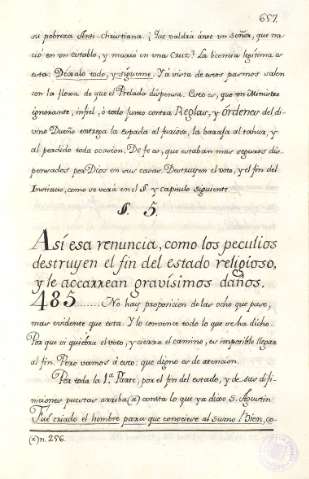 657.
su pobreza Anti-christiana. ¿Tas valdrá ante un Señor, que na-
ció en un establo, y murió en una Cruz? La licencia legítima es
esta: Déxalo todo, y sígueme. Ya vista de estos pasmos salen
con la flema de que el Prelado dispensa. Esto es, que un Ministro
ignorante, infiel, ó todo junto contra Reglas, y órdenes del di-
vino Dueño entrega la espada al furioso, la baraja al tahur, y
al perdido toda ocasion. De feos, que estaban mas seguros dis-
pensados por Dios en sus casas. Destruyen el voto, y el fin del
Instituto, como se verá en el §. y capítulo siguiente.
§. 5.
Así esa renuncia, como los peculios
destruyen el fin del estado religioso,
y le accarrean gravísimos daños.
485........No hay proposicion de las ocho que pase,
mas evidente que esta. Y lo convence todo lo que se ha dicho.
Por que si quiebra el voto, y cierra el camino, es imposible llegar
al fin. Pero vamos á esto: que digno es de atencion.
Por toda la 1.ª Parte, por el fin del estado, y de sus difi-
niciones puestas arriba (x) consta lo que ya dixo S. Agustin:
Fué criado el hombre para que conociese al sumo Bien, co-
(x) n. 256.